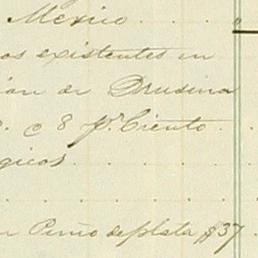 Mexico
os existentes en
ión de Drusina
c 8 pr. Ciento
gicos.
n Puño de plata $37